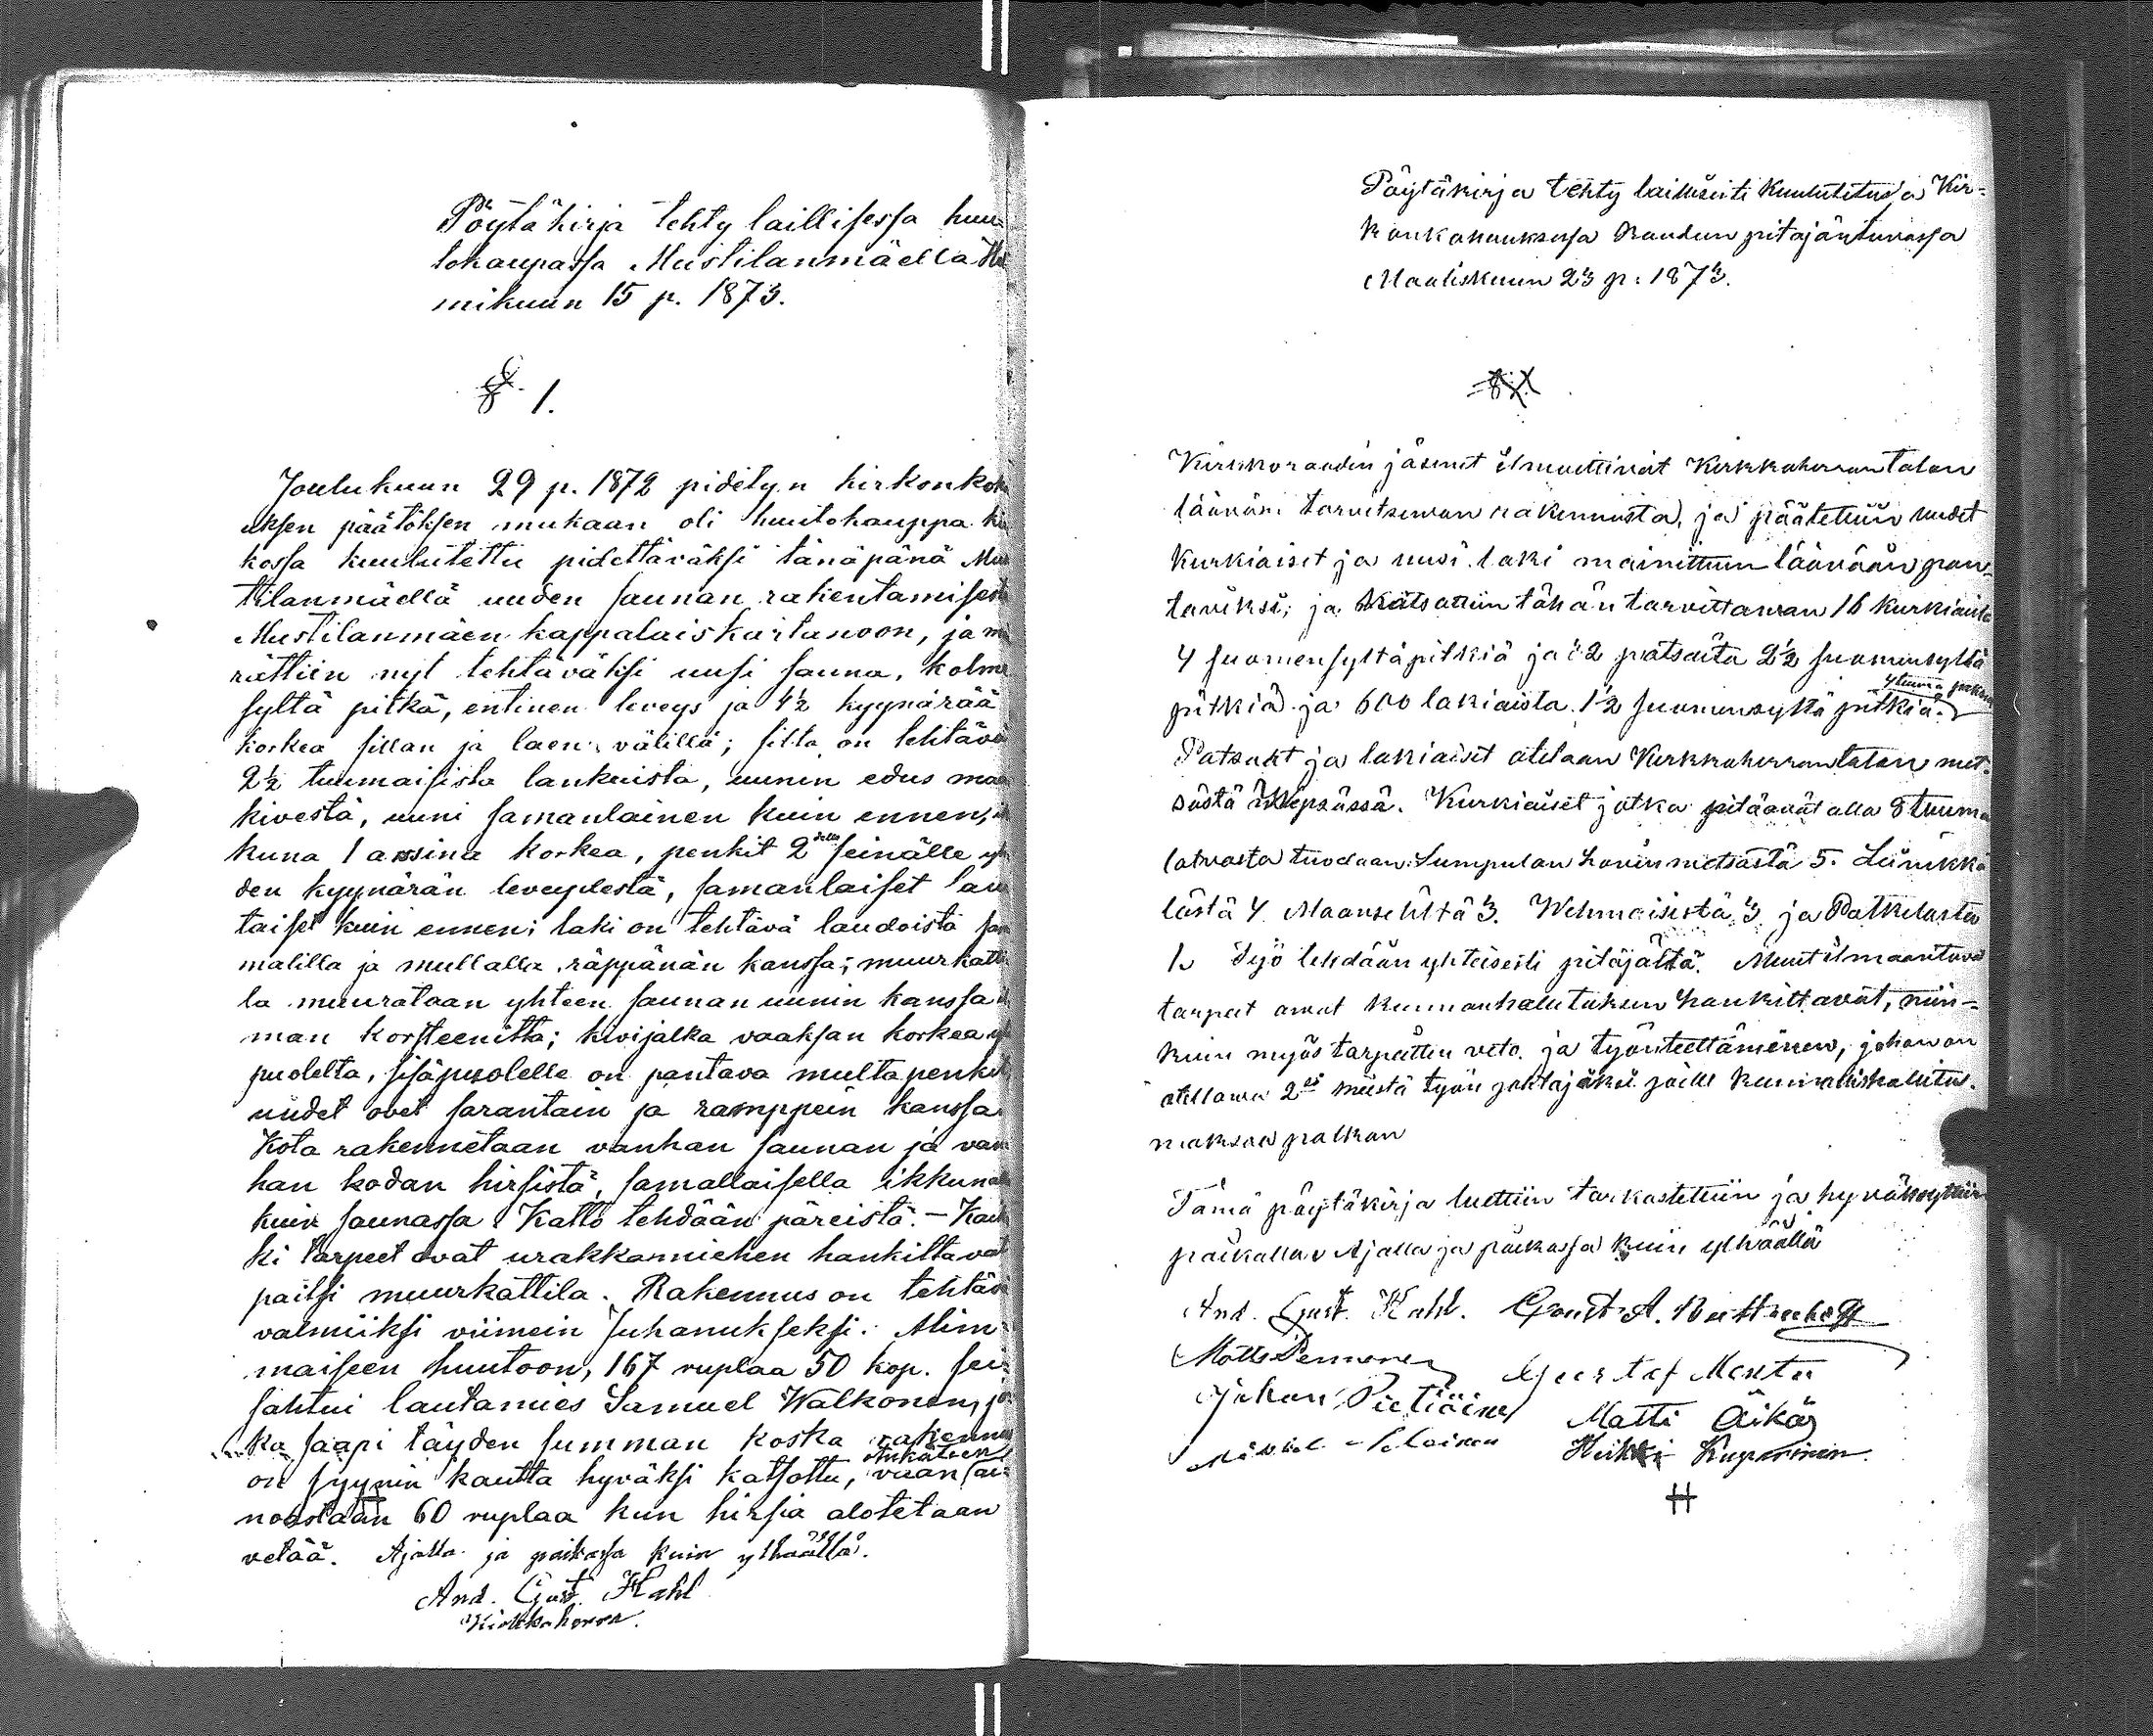 Pöytäkirja tehty laillisessa huu-
tokaupassa Mustilanmäellä
mikuun 15 p. 1873.
§ 1.
Joulukuun 29 p. 1872 pidetyn kirkonkok
uksen päätöksen mukaan oli huutokauppa
kossa kuulutettu pidettäväksi tänäpänä Mus
tilanmäellä uuden saunan rakentamisest
Mustilanmäen kappalaiskartanoon, ja mä
rättiin nyt tehtäväksi uusi sauna, kolme
syltä pitkä, entinen leveys ja 4½ kyynärää
korkea sillan ja laen välillä; silta on tehtävä
2½ tuumaisista lankuista, uunin edus maa
kivestä, uuni samanlainen kuin ennen,
kuna 1 arssina korkea, penkit 2della seinälle yh
den kyynärän leveydestä, samanlaiset lau
taiset kuin ennen; laki on tehtävä laudoista sam
malilla ja mullalla, räppänän kanssa; muurkatti
la muurataan yhteen saunan uunin kanssa il
man korsteenitta; kivijalka vaaksan korkea
puolelta, sisäpuolelle on pantava multapenkit
uudet ovet sarantain ja ramppein kanssa
Kota rakennetaan vanhan saunan ja van
han kodan hirsistä, samallaisella ikkunal
kuin saunassa. Katto tehdään päreistä. – Kaik
ki tarpeet ovat urakkamiehen hankittavat
paitsi muurkattila. Rakennus on tehtävä
valmiiksi viimein Juhanukseksi. Alim
maiseen huutoon, 167 ruplaa 50 kop. su-
sahtui lautamies Samuel Walkonen, jo-
ka saapi täyden summan koska rakennus
on syynin kautta hyväksi katsottu, vaan sai-
etukäteen
nostaan 60 ruplaa kun hirsiä alotetaan
vetää. Ajalla ja paikassa kuin ylhäällä.
And. Gust. Hahl
Kirkkoherra.
Pöytäkirja tehty laillisesti kuulutetussa Kir-
konkokouksessa Raudun pitäjäntuvassa
Maaliskuun 23 p. 1873.
Kirkkoraadin jäsenet ilmoittivat Kirkkoherrantalon
läävän tarvitsewan rakennusta, ja päätettiin uudet
kurkiaiset ja uusi laki mainittuun läävään pan-
taviksi; ja katsottiin tähän tarvittawan 16 kurkiaista
4 suomensyltä pitkiä ja 12 patsaita 2½ suomensyltä
pitkiä ja 600 lakiaista 1½ suomensyltä pitkiä.
4 tuuma paksu
Patsaat ja lakiaiset otetaan Kirkkoherrantalon met-
sästä. Kurkiaiset jotka pitäävät olla 8 tuuma
latvasta tuodaan: Sumpulan hovin metsästä 5. Liinikka
lästä 4 Maanseliltä 3. Wehmaisista 3 ja Potkelasta
1. Työ tehdään yhteisesti pitäjältä. Muut ilmaantuvat
tarpeet owat kunnanhalituksen hankittavat, niin-
kuin myös tarpeitten veto ja työnteettäminen, johon on
otettawa 2si miestä työn johtajaksi joille kunnallishalitus
maksaa palkan
Tämä pöytäkirja luettiin tarkastettiin ja hyväksyttiin
paikalla. Ajalla ja paikassa kuin ylhäällä
And. Gust. Hahl.
Matts Pennanen Gustaf
Johan Pietiäinen Matti Äikäs
Heikki Kuparinen.